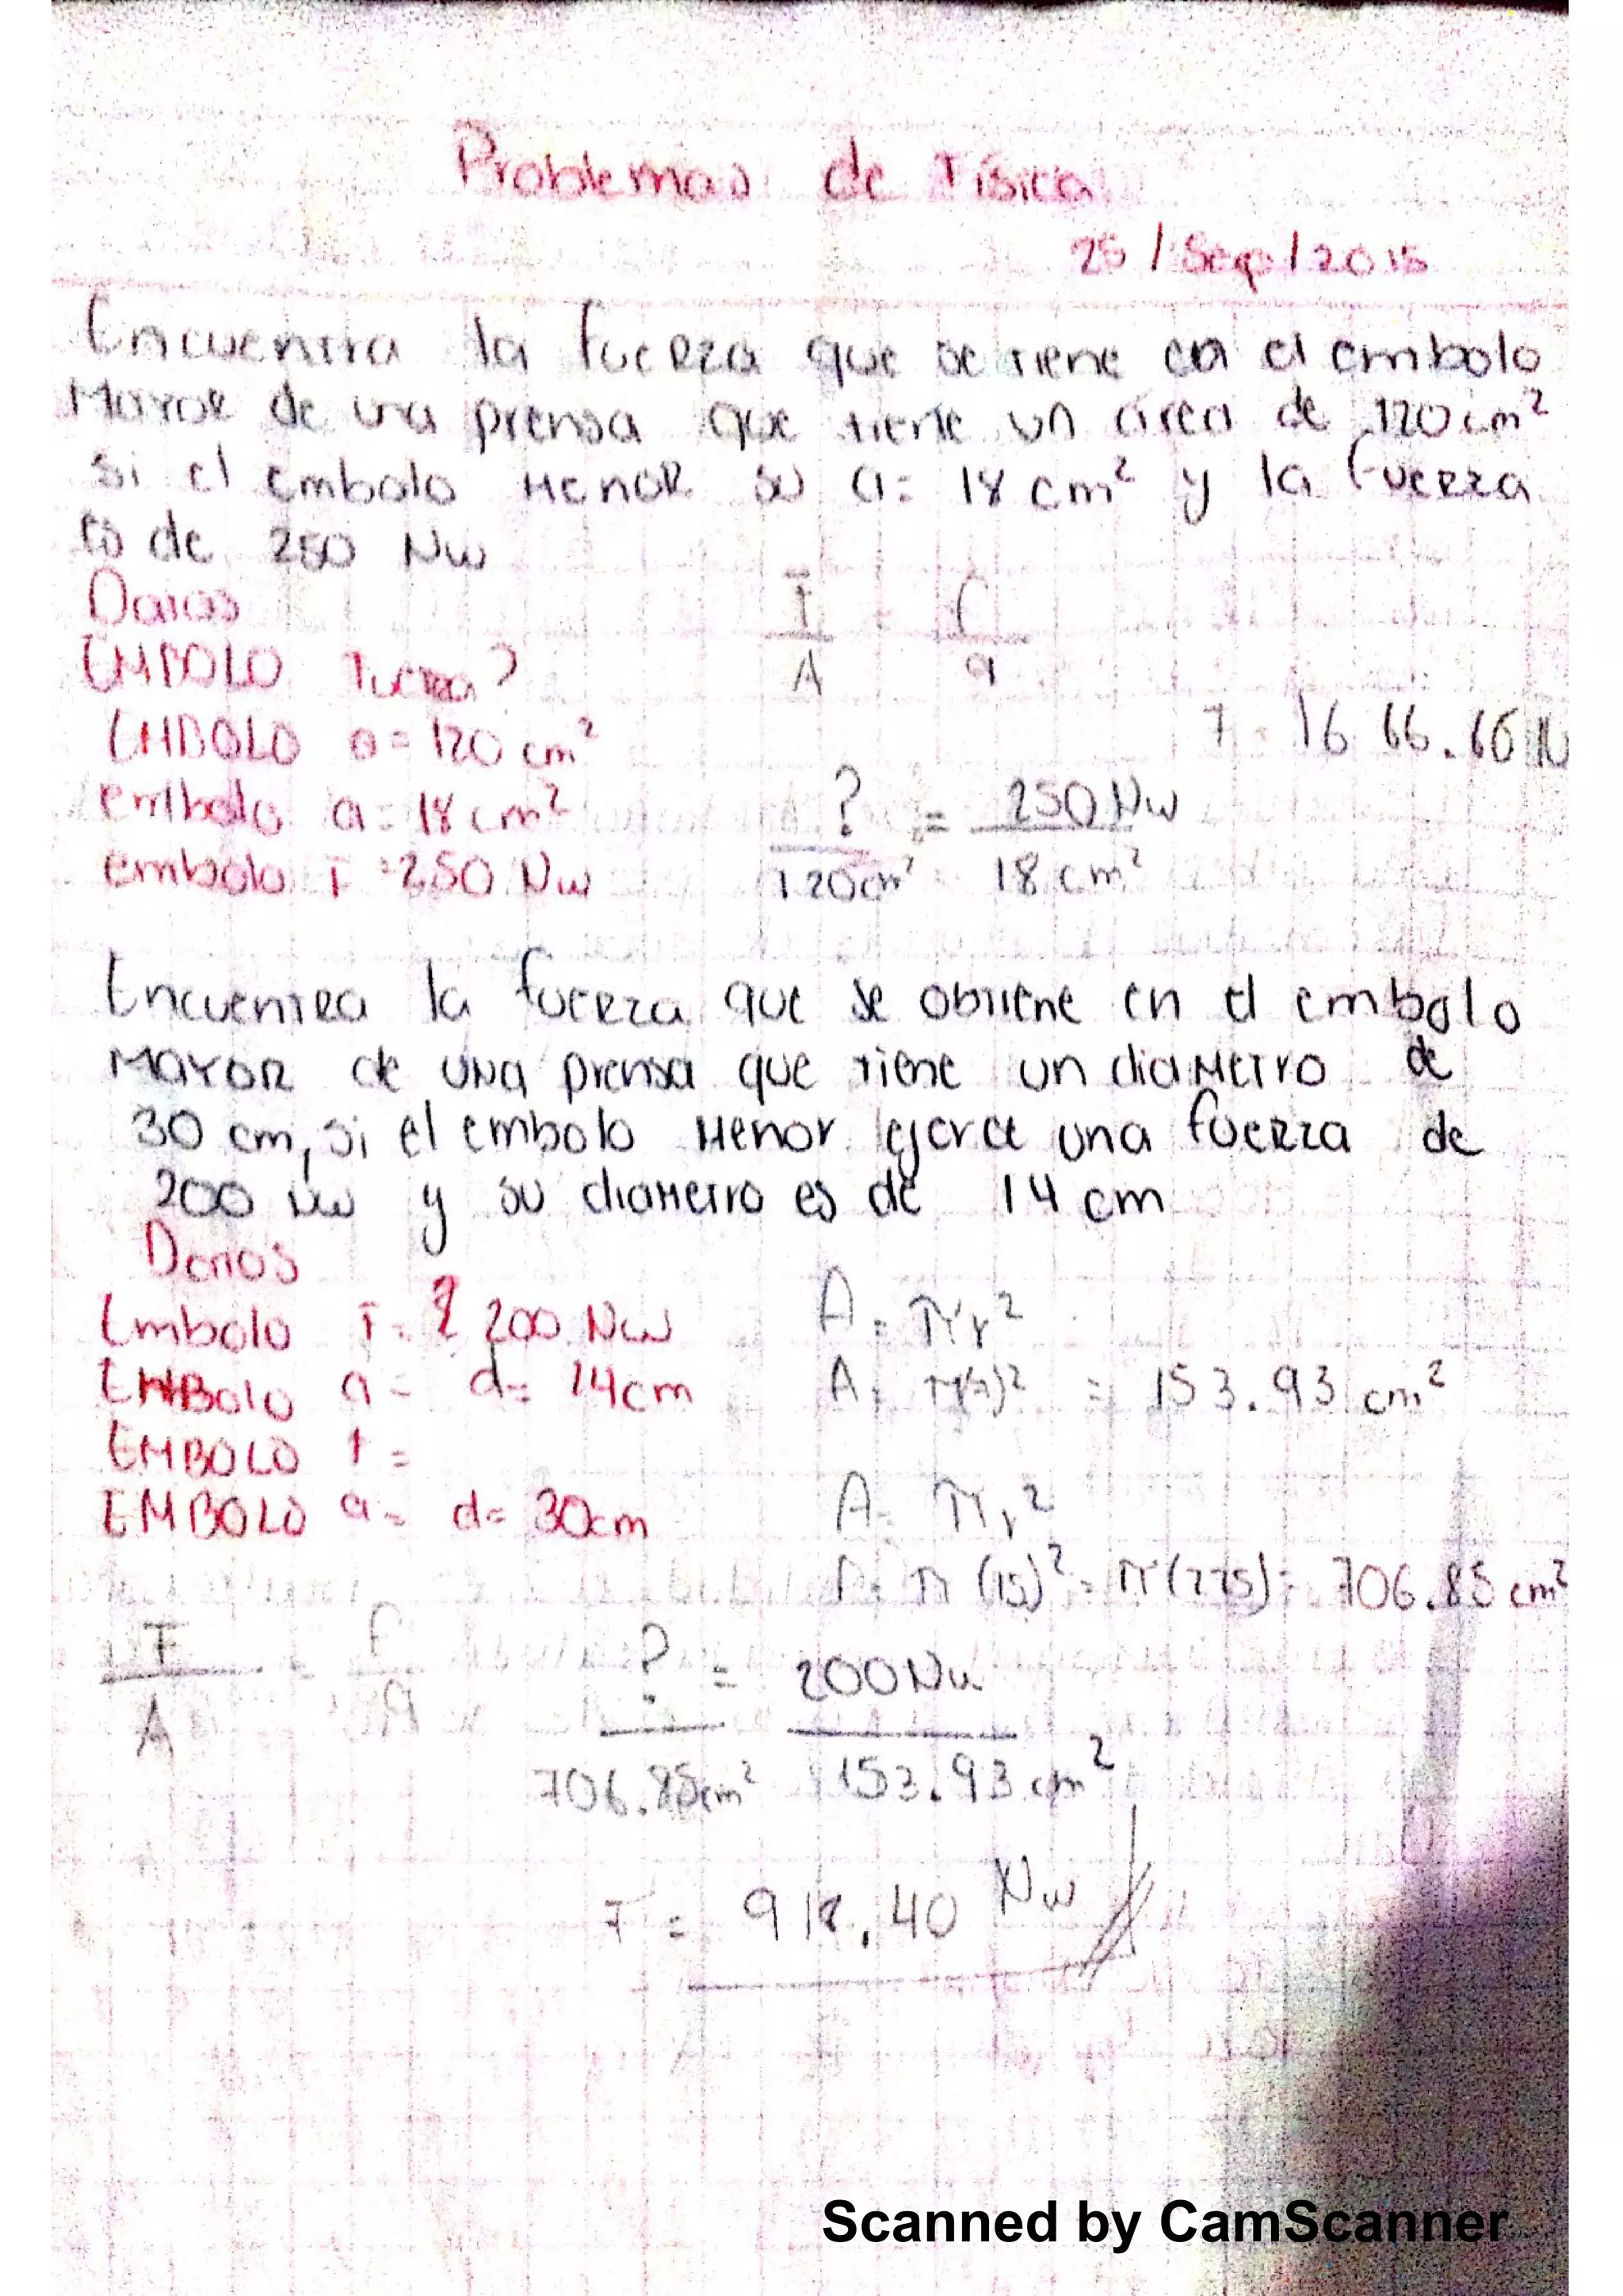 Problemas de Física
25/Sep/2015
Encuentra la fuerza que se tiene en el embolo
Mayor de una prensa que tiene un área de 120 cm²
si el embolo Menor su a= 18 cm² y la fuerza
es de 250 Nw
Datos
EMBOLO Fuerza?
EMBOLO a= 120 cm²
embolo a= 18 cm²
embolo F = 250 Nw
F/A = f/a
F = 1666.66 N
?/120cm² = 250 Nw/18 cm²
Encuentra la fuerza que se obtiene en el embolo
Mayor de una prensa que tiene un diametro de
30 cm, si el embolo Menor ejerce una fuerza de
200 Nw y su diametro es de 14 cm
Datos
Embolo F= ? 200 Nw
EMBolo a= d= 14cm
EMBOLO f=
EMBOLO a= d= 30cm
A = πr²
A = π(7)² = 153.93 cm²
A= πr²
A= π (15)² = π(225) = 706.85 cm²
F/A = f/a
?/706.85cm² = 200Nw/153.93 cm²
F = 918.40 Nw
Scanned by CamScanner